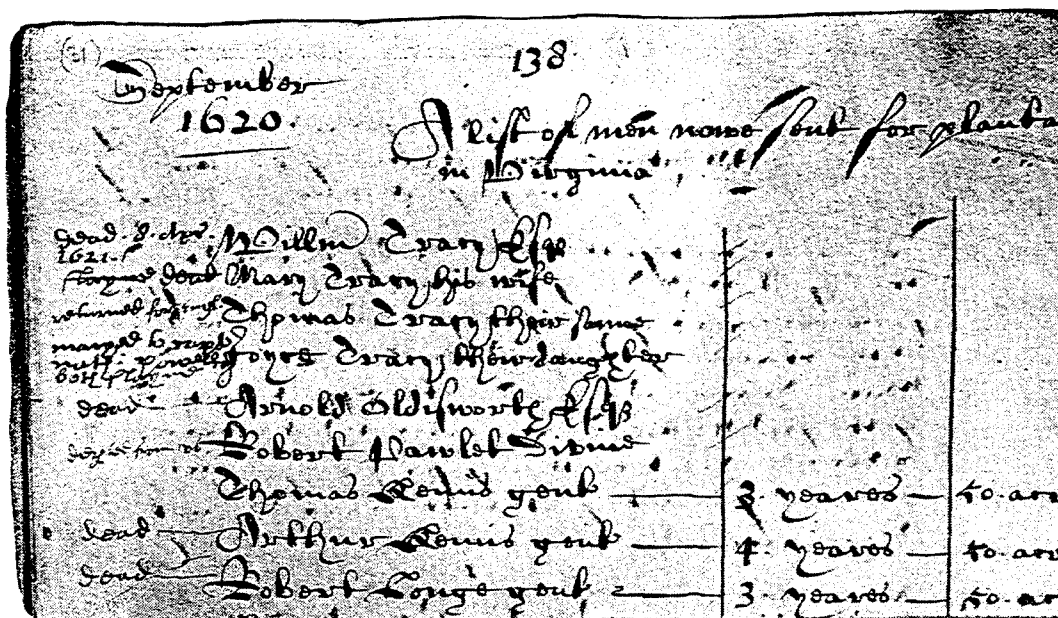 (31)
138
September
1620.
A list of men nowe sent for planta
in Virginia
dead 8. Apr. Willm Tracy Esqr
1621.
dead Mary Tracy his wife
returned Thomas Tracy their sonne
maryed to capt Joyce Tracy their daughter
nath: powell
both slayne
dead Arnold Oldisworth Esqr
Robert Pawlet Divine
Thomas Kemis gent 3 yeares 50 acr
dead Arthur Kemis gent 4. yeares 50 acr
dead Robert Longe gent 3 yeares 50 acr